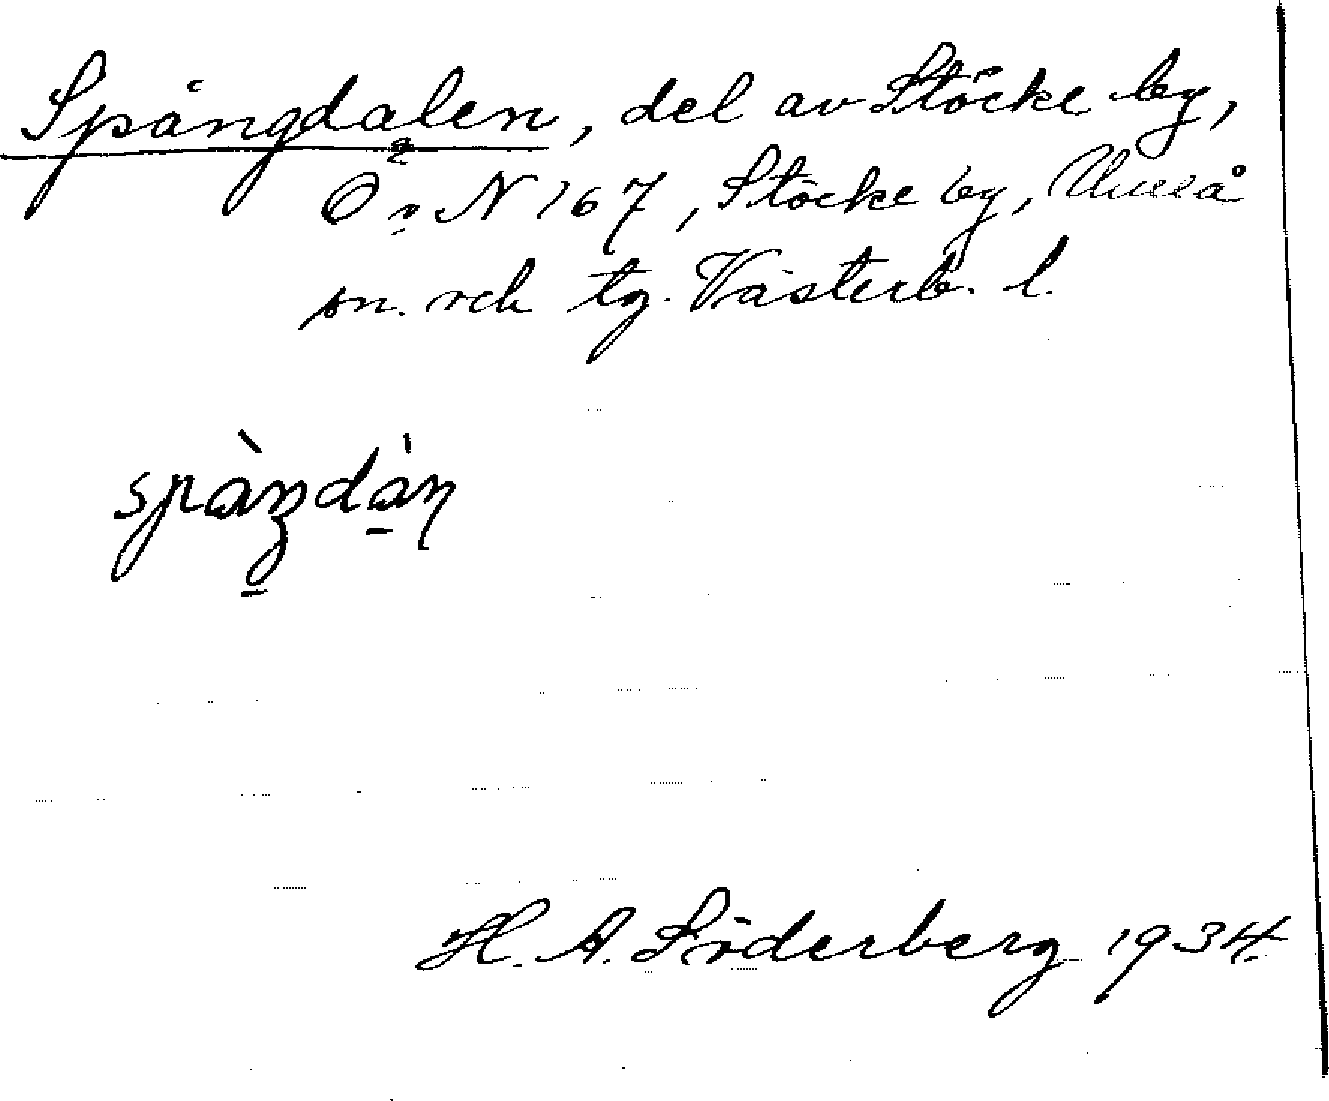 Spångdalen, del av Stöcke by,
Ö v N 167, Stöcke by, Umeå
sn. och tg. Västerb. l.
spàŋdàn
H. A. Söderberg 1934